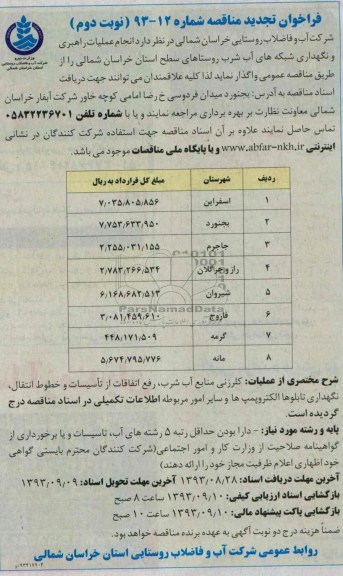 فراخوان تجدید مناقصه شماره ۱۲-۹۳ (نوبت دوم)
شرکت آب و فاضلاب روستایی خراسان شمالی در نظر دارد انجام عملیات راهبری
و نگهداری شبکه های آب شرب روستاهای سطح استان خراسان شمالی را از
طریق مناقصه عمومی واگذار نماید لذا کلیه علاقمندان می توانند جهت دریافت
اسناد مناقصه به آدرس: بجنورد میدان فردوسی خ رضا امامی کوچه خاور شرکت آبفار خراسان
شمالی معاونت نظارت بر بهره برداری مراجعه نمایند و یا با شماره تلفن ۰۵۸۳۲۲۳۶۷۰۱
تماس حاصل نمایند علاوه بر آن اسناد مناقصه جهت استفاده شرکت کنندگان در نشانی
اینترنتی www.abfar-nkh.ir و یا پایگاه ملی مناقصات موجود می باشد.
ردیف شهرستان مبلغ کل قرارداد به ریال
۱ اسفراین ۷/۰۳۵/۸۰۵/۸۵۶
۲ بجنورد ۷/۷۵۳/۶۳۳/۹۵۰
۳ جاجرم ۲/۲۵۵/۰۳۱/۱۵۵
۴ راز و جرگلان ۲/۷۸۳/۲۶۶/۵۳۴
۵ شیروان ۶/۱۶۸/۶۸۲/۵۱۳
۶ فاروج ۳/۰۸۱/۴۵۹/۶۱۰
۷ گرمه ۴۴۸/۱۷۱/۵۰۹
۸ مانه ۵/۶۷۴/۷۹۵/۷۷۶
ParsNamadData
شرح مختصری از عملیات: کلرزنی منابع آب شرب، رفع اتفاقات از تأسیسات و خطوط انتقال،
نگهداری تابلوها الکتروپمپ ها و سایر امور مربوطه اطلاعات تکمیلی در اسناد مناقصه درج
گردیده است.
پایه و رشته مورد نیاز: - دارا بودن حداقل رتبه ۵ رشته های آب، تاسیسات و یا برخورداری از
گواهینامه صلاحیت از وزارت کار و امور اجتماعی(شرکت کنندگان محترم بایستی گواهی
خود اظهاری اعلام ظرفیت مجاز خود را ارائه دهند)
آخرین مهلت دریافت اسناد: ۱۳۹۳/۰۸/۲۸ آخرین مهلت تحویل اسناد: ۱۳۹۳/۰۹/۰۹
بازگشایی اسناد ارزیابی کیفی: ۱۳۹۳/۰۹/۱۰ ساعت ۸ صبح
بازگشایی پاکت پیشنهاد مالی: ۱۳۹۳/۰۹/۱۰ ساعت ۱۰ صبح
ضمناً هزینه درج دو نوبت آگهی به عهده برنده مناقصه خواهد بود.
روابط عمومی شرکت آب و فاضلاب روستایی استان خراسان شمالی